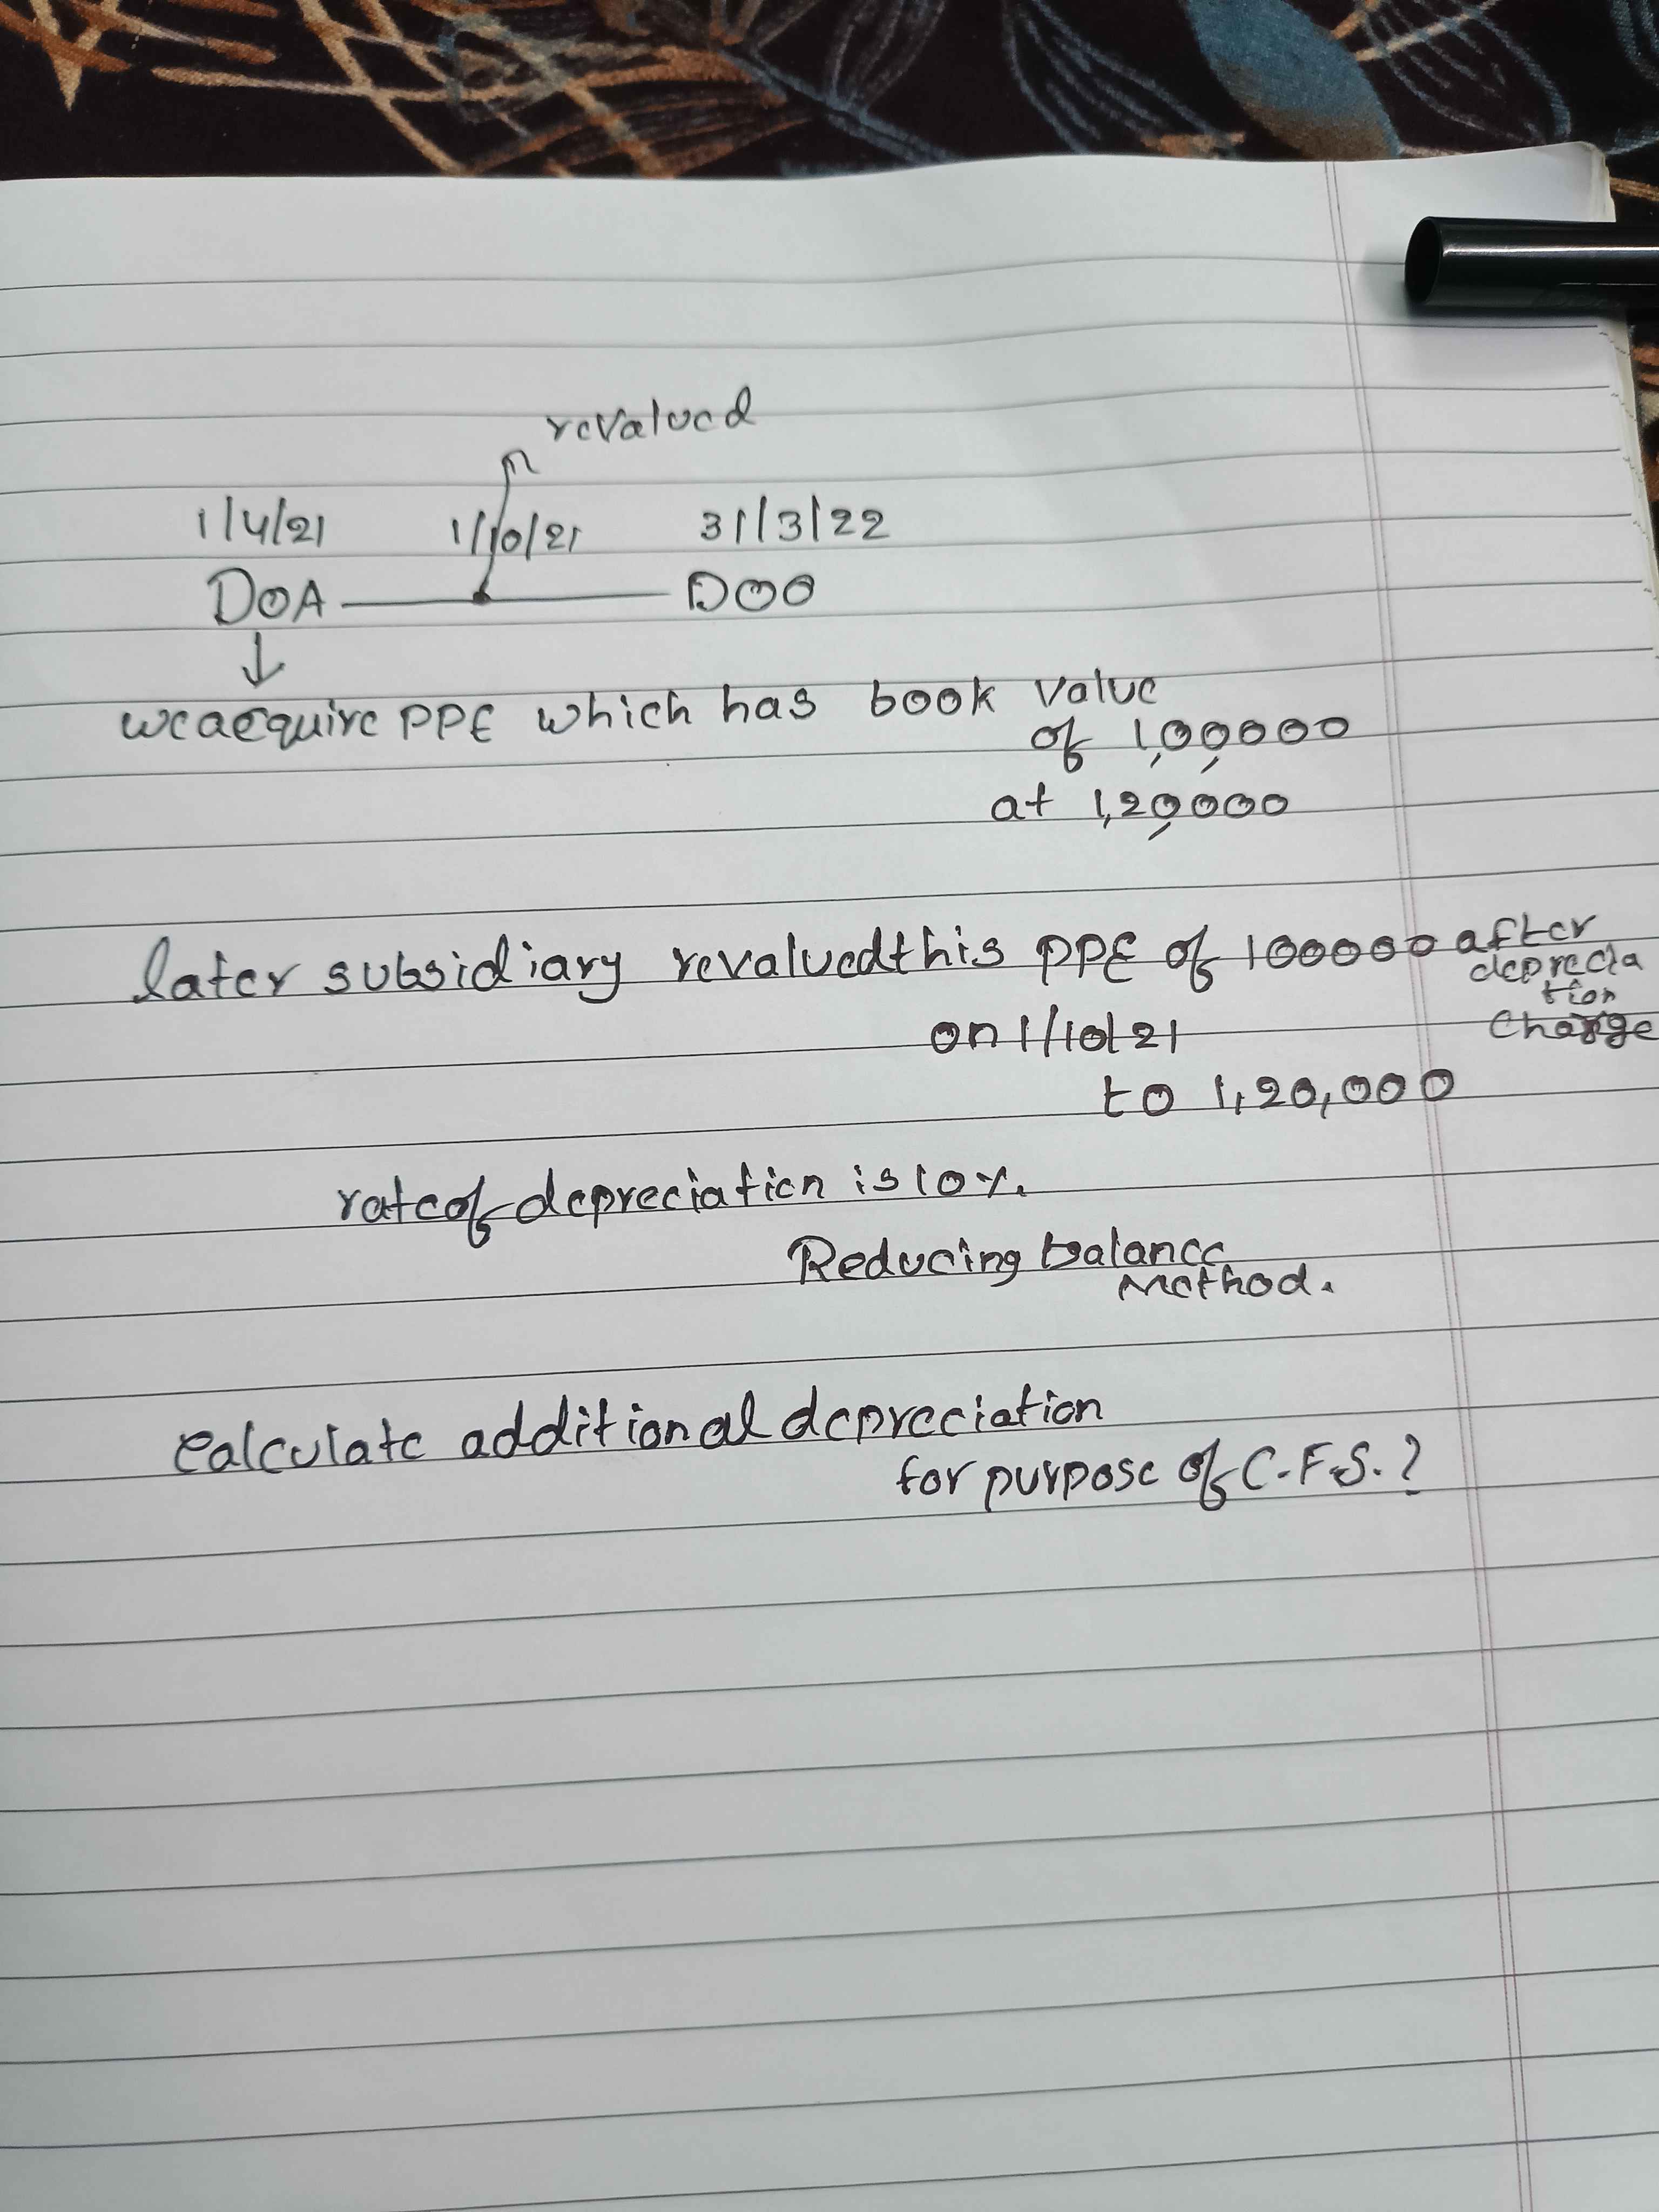 revalued
1/4/21 1/10/21 31/3/22
DOA DOO
we acquire PPE which has book value
of 1,00,000
at 1,20,000
later subsidiary revalued this PPE of 100000 after
deprecia
tion
charge
on 1/10/21
to 1,20,000
rate of depreciation is 10%.
Reducing balance
Method.
calculate additional depreciation
for purpose of C.F.S.?